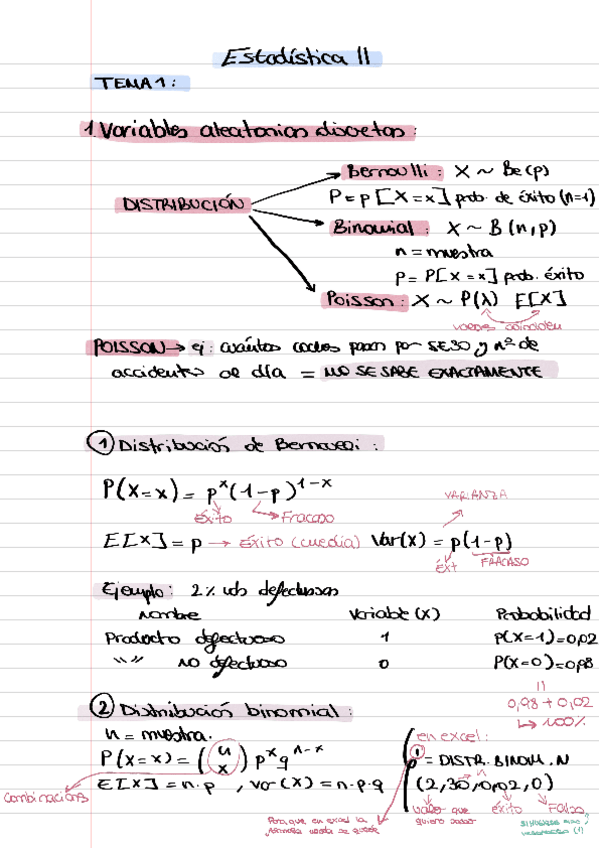 Estadística II
TEMA 1:
1 Variables aleatorias discretas:
Bernoulli: X ~ Be(p)
DISTRIBUCIÓN
P = p [X = x] prob. de éxito (n=1)
Binomial: X ~ B(n,p)
n = muestra
P = P[X = x] prob. éxito
Poisson: X ~ P(λ) E[X]
valores coinciden
POISSON → ej: cuántos coches pasan por SE30 y nº de
accidentes al día = NO SE SABE EXACTAMENTE
① Distribución de Bernoulli:
P(X=x) = p^x (1-p)^1-x
éxito Fracaso
VARIANZA
E[X] = p → éxito (media) Var(x) = p(1-p)
éxt FRACASO
Ejemplo: 2% uds defectuosas
nombre Variable (X) Probabilidad
Producto defectuoso 1 P(X=1)=0,02
"" NO defectuoso 0 P(X=0)=0,98
0,98 + 0,02
↳ 100%
② Distribución binomial:
n = muestra.
en excel:
P(X=x) = (n x) p^x q^n-x
= DISTR.BINOM.N
E[X] = n·p , var(X) = n·p·q
(2,30,0,02,0)
combinacions
valor que quiero saber
éxito
Falso
Para que en excel la
primera celda se quede